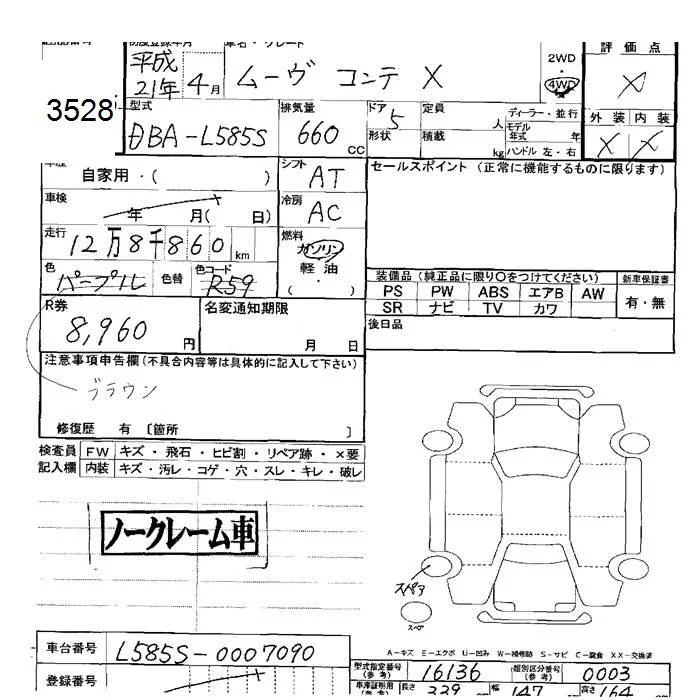 初度登録年月 車名・グレード
平成 21年 4月 ムーヴ コンテ X 2WD ・ 4WD 評価点 X
3528
型式 排気量 ドア 定員 ディーラー・並行 外装 内装
DBA-L585S 660 CC 5 形状 積載 人 kg モデル年式 年 ハンドル 左・右 X X
車歴 自家用・( ) シフト AT セールスポイント (正常に機能するものに限ります)
車検 年 月( 日) 冷房 AC
走行 12万8千860km 燃料 ガソリン 軽油 ・ ( )
色 パープル 色替 色コード R59
装備品 (純正品に限り〇をつけてください) 新車保証書
PS PW ABS エアB AW 有・無
SR ナビ TV カワ
R券 8,960円 名変通知期限 月 日 後日品
注意事項申告欄(不具合内容等は具体的に記入して下さい)
ブラウン
修復歴 有 〔箇所 〕
検査員 FW キズ・飛石・ヒビ割・リペア跡・×要
記入欄 内装 キズ・汚レ・コゲ・穴・スレ・キレ・破レ
ノークレーム車
スペア
スペア
A-キズ E-エクボ U-凹み W-補修跡 S-サビ C-腐食 XX-交換済
車台番号 L585S-0007090
型式指定番号(参考) 16136 類別区分番号(参考) 0003
登録番号
長さ 339 幅 147 高さ 164